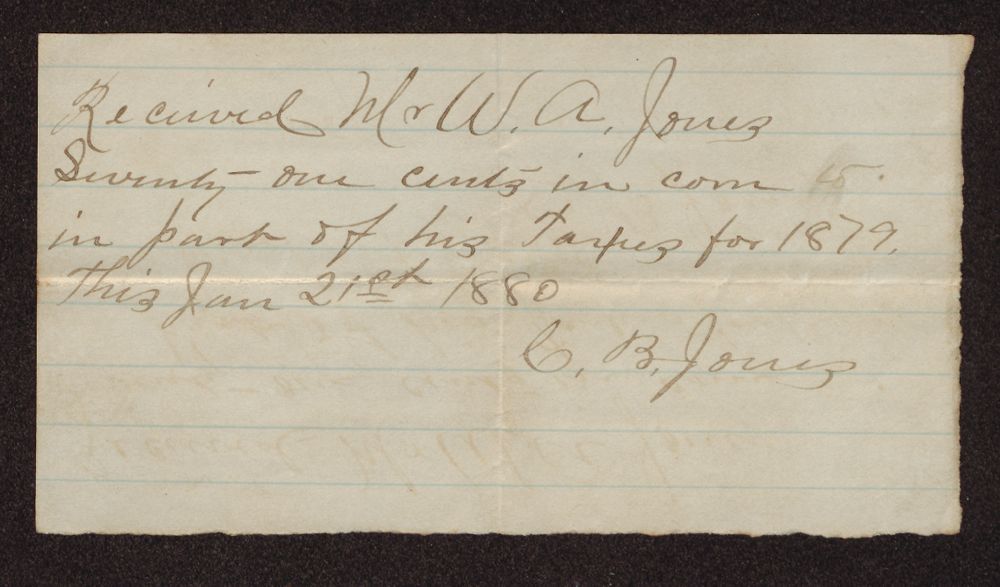 Recived Mr W. A. Jones
Seventy one cents in corn
in part of his Taxes for 1879.
This Jan 21st 1880
C. B. Jones